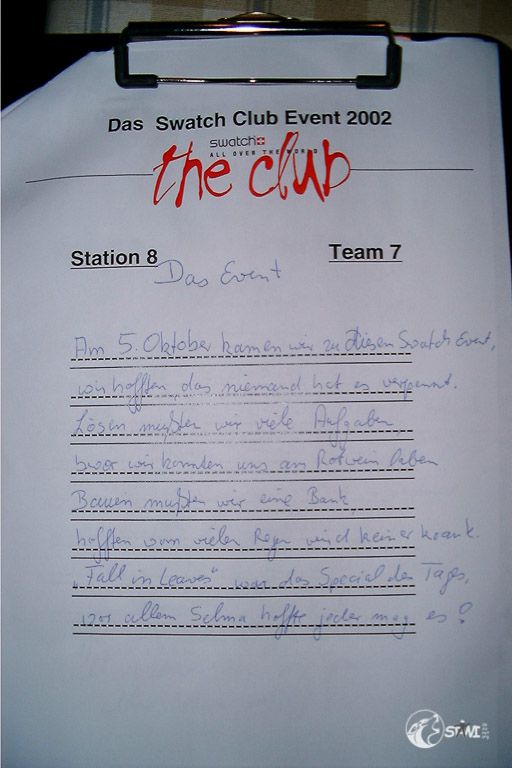 Das Swatch Club Event 2002
swatch
ALL OVER THE WORLD
the club
Station 8
Team 7
Das Event
Am 5. Oktober kamen wir zu diesen Swatch Event,
wir hofften, das niemand hat es verpennt.
Lösen mußten wir viele Aufgaben,
bevor wir konnten uns am Rotwein laben
Bauen mußten wir eine Bank,
hofften vom vielen Regen wird keiner krank.
"Fall in Leaves" war das Special des Tages,
vor allem Selma hoffte jeder mag es!
STAWI